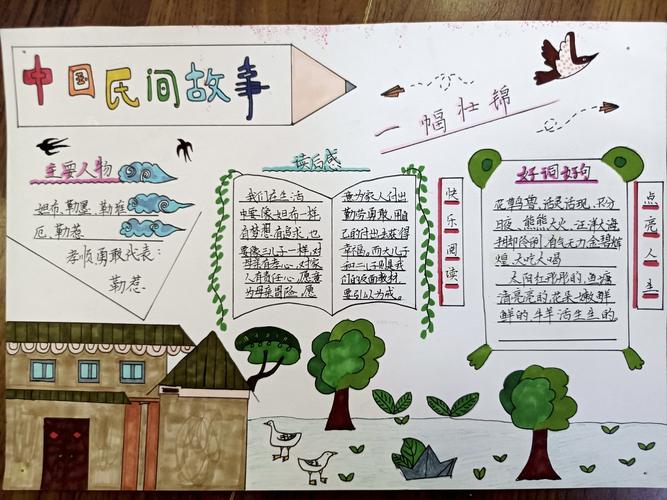 中国民间故事
一幅壮锦
主要人物
妲布、勒墨、勒堆
厄、勒惹
孝顺勇敢代表:
勒惹
读后感
我们在生活
中要像妲布一样
有梦想,有追求,也
要像三儿子一样,对
母亲有孝心,对家
人有责任心,愿意
为母亲冒险,愿
意为家人付出
勤劳勇敢,用自
己的付出去获得
幸福。而大儿子
和二儿子则是我
们的反面教材,
要引以为戒。
快乐阅读
好词好句
活灵活现、不分
日夜、熊熊大火、汪洋大海
有气无力、金碧辉
煌、大吃大喝
太阳红彤彤的,鱼塘
清亮亮的,花朵嫩鲜
鲜的,牛羊活生生的。
点亮人生